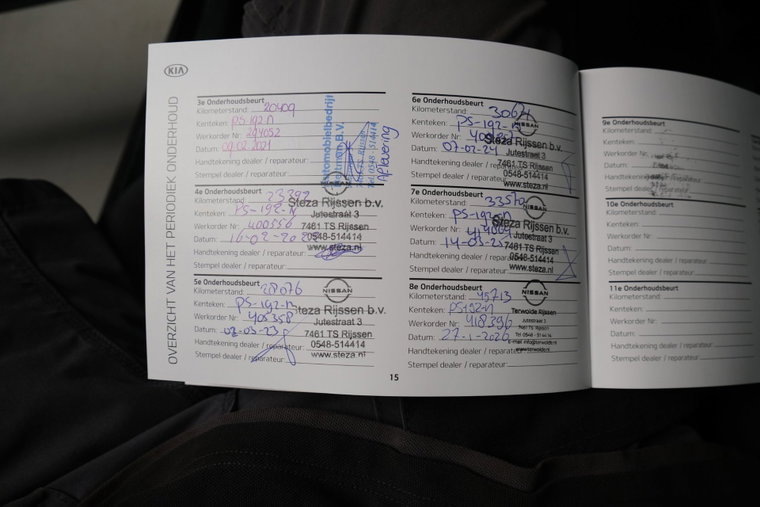 KIA
OVERZICHT VAN HET PERIODIEK ONDERHOUD
3e Onderhoudsbeurt
Kilometerstand: 20409
Kenteken: PS-192-N
Werkorder Nr: 294052
Datum: 09.02.2021
Handtekening dealer / reparateur:
Stempel dealer / reparateur:
Automobielbedrijf
B.V.
Tel. 0548-514414
Aflevering
4e Onderhoudsbeurt
Kilometerstand: 23292
Kenteken: PS-192-N
Werkorder Nr: 400556
Datum: 16-02-202
Handtekening dealer / reparateur:
Stempel dealer / reparateur:
Steza Rijssen b.v.
Jutestraat 3
7461 TS Rijssen
0548-514414
www.steza.nl
5e Onderhoudsbeurt
Kilometerstand: 28076
Kenteken: PS-192-N
Werkorder Nr: 405358
Datum: 03-03-23
Handtekening dealer / reparateur:
Stempel dealer / reparateur:
NISSAN
Steza Rijssen b.v.
Jutestraat 3
7461 TS Rijssen
0548-514414
www.steza.nl
6e Onderhoudsbeurt
Kilometerstand:
Kenteken: PS-192-N
Werkorder Nr:
Datum: 07-02-24
Handtekening dealer / reparateur:
Stempel dealer / reparateur:
NISSAN
Steza Rijssen b.v.
Jutestraat 3
7461 TS Rijssen
0548-514414
www.steza.nl
7e Onderhoudsbeurt
Kilometerstand: 33572
Kenteken: PS-192-N
Werkorder Nr:
Datum: 14-03-
Handtekening dealer / reparateur:
Stempel dealer / reparateur:
NISSAN
Steza Rijssen b.v.
Jutestraat 3
7461 TS Rijssen
0548-514414
www.steza.nl
8e Onderhoudsbeurt
Kilometerstand: 45713
Kenteken: PS192-N
Werkorder Nr: 418396
Datum: 27-1-2026
Handtekening dealer / reparateur:
Stempel dealer / reparateur:
NISSAN
Terwolde Rijssen
Jutestraat 3
7461 TS Rijssen
Tel. 0548 - 51 44 14
E-mail: info@terwolde.nl
www.terwolde.nl
15
9e Onderhoudsbeurt
Kilometerstand:
Kenteken:
Werkorder Nr:
Datum:
Handtekening dealer / reparateur:
Stempel dealer / reparateur:
10e Onderhoudsbeurt
Kilometerstand:
Kenteken:
Werkorder Nr:
Datum:
Handtekening dealer / reparateur:
Stempel dealer / reparateur:
11e Onderhoudsbeurt
Kilometerstand:
Kenteken:
Werkorder Nr:
Datum:
Handtekening dealer / reparateur:
Stempel dealer / reparateur: